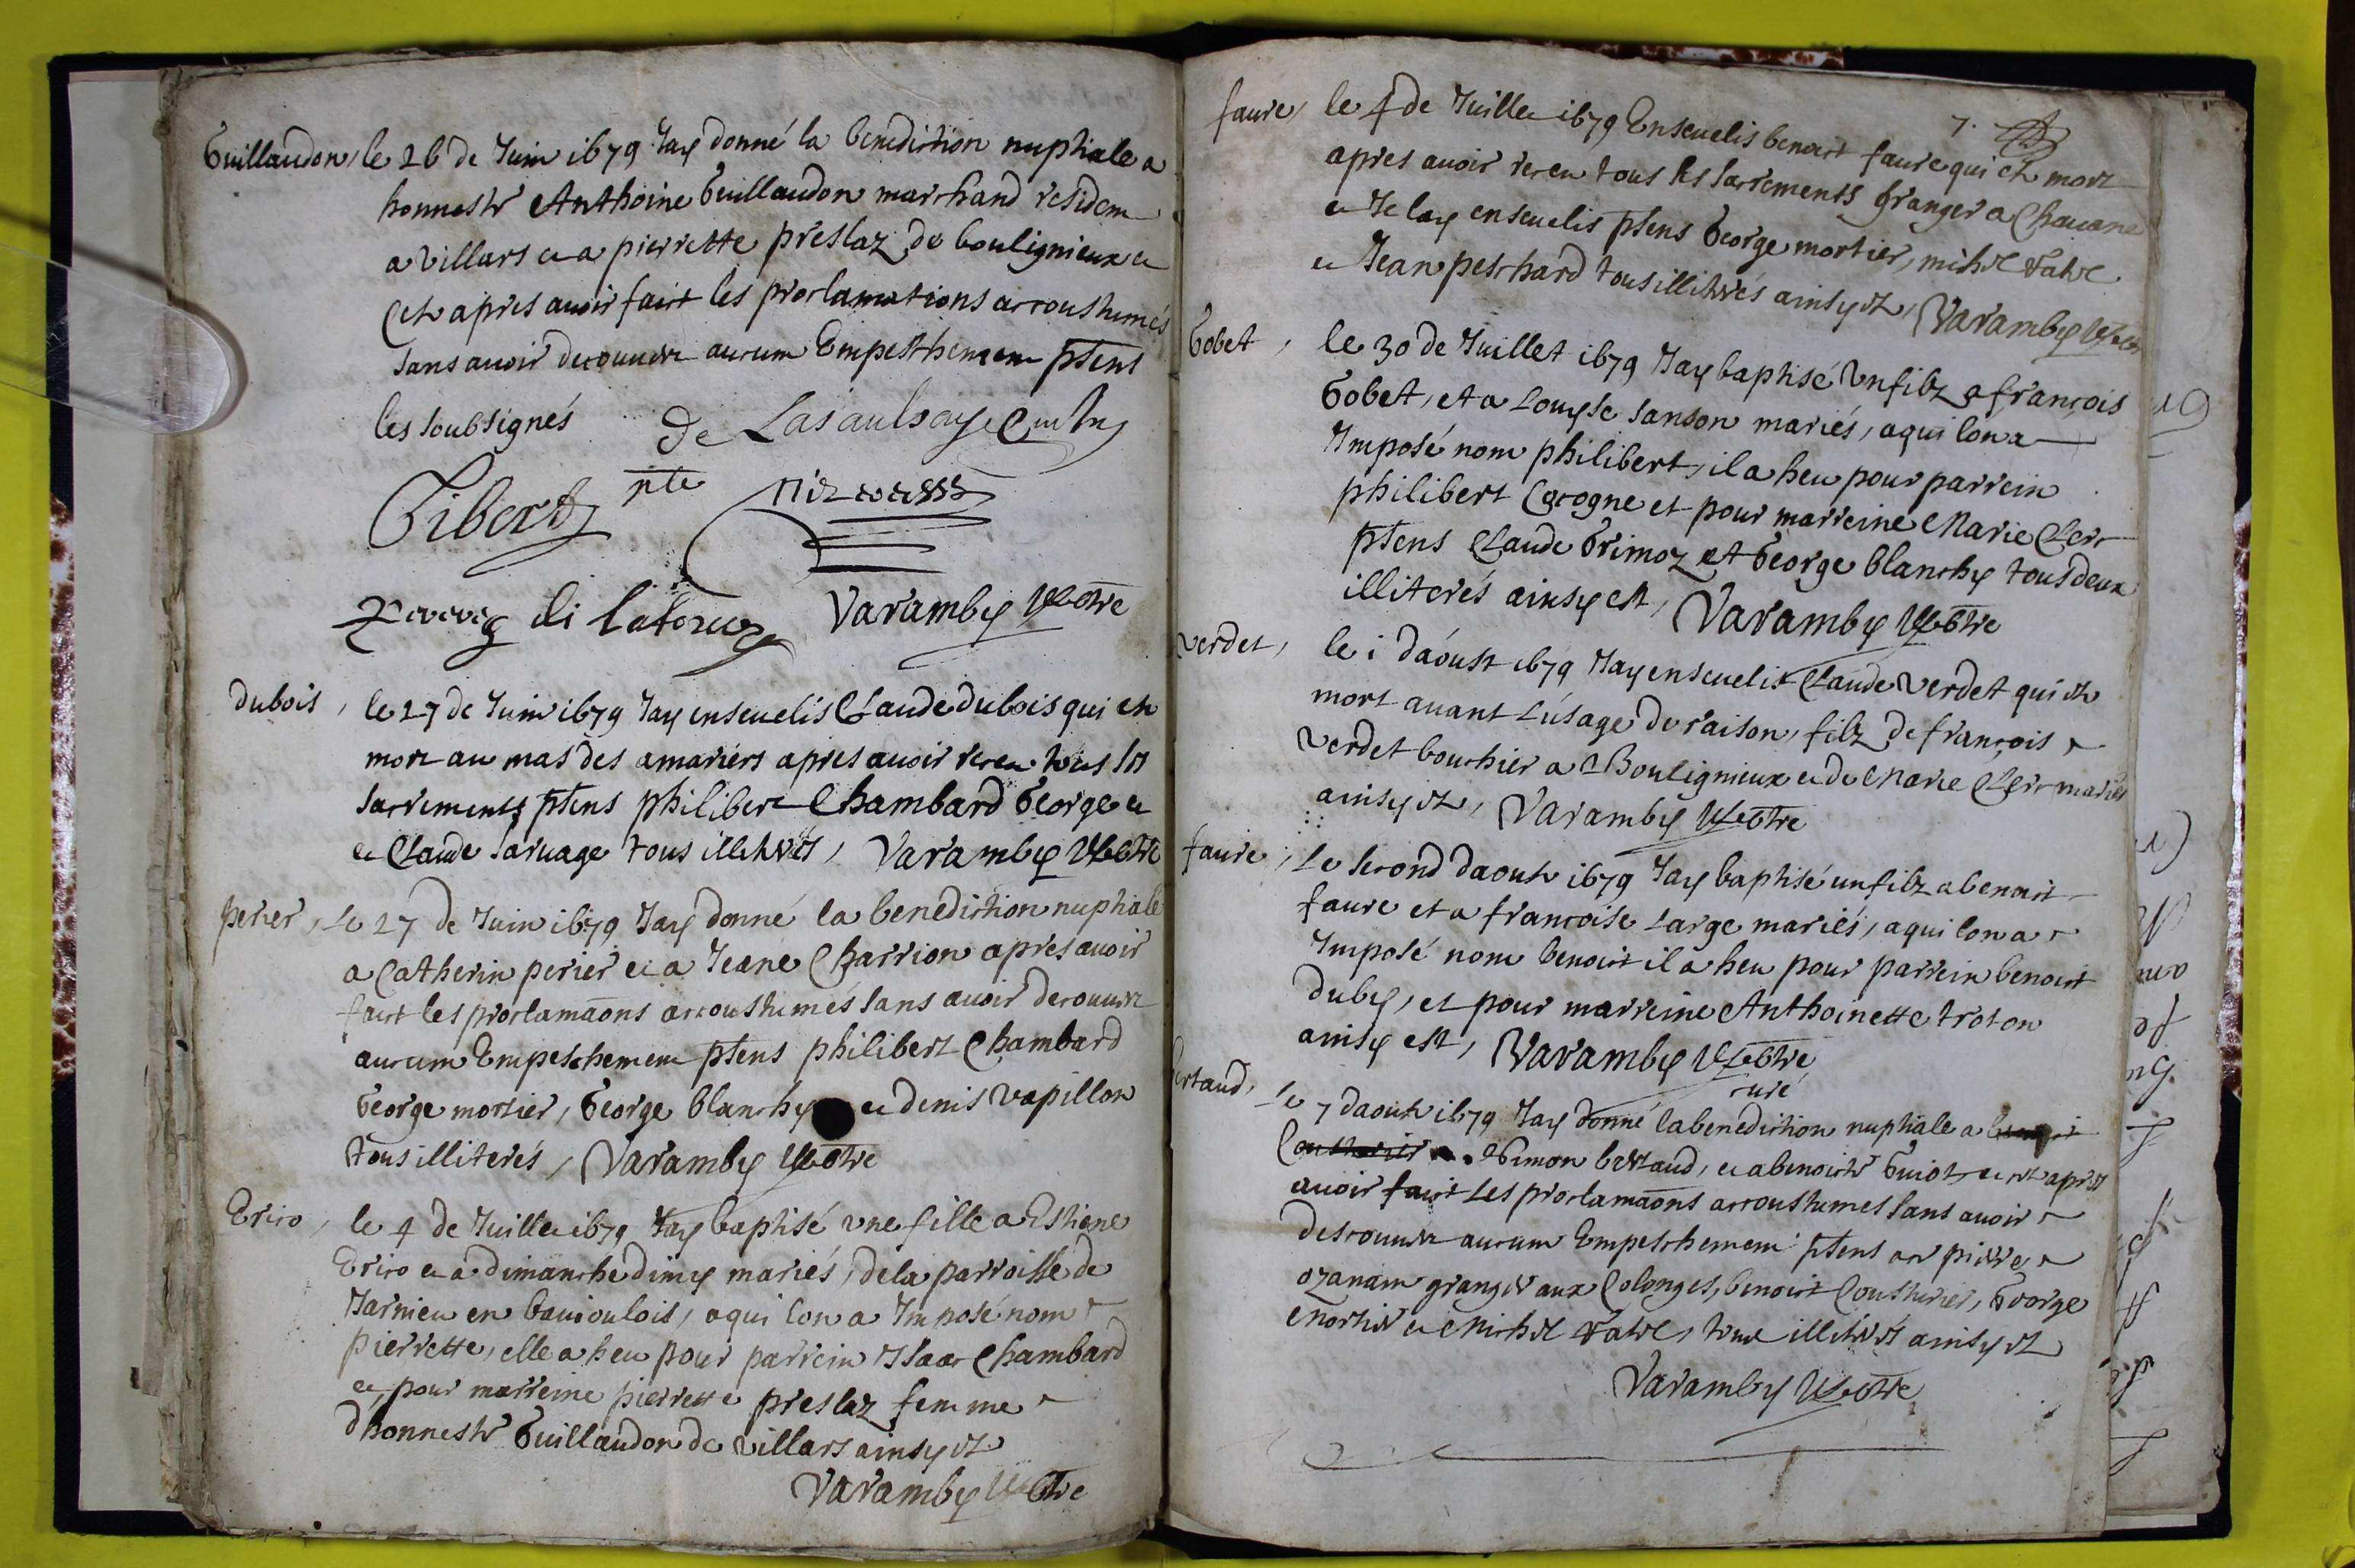 Guillaudon, le 26 de Juin 1679 Jay donné la benediction nuptiale a
honneste Anthoine Guillaudon marchand resident
a villars et a pierrette preslaz de boulignieux et
cet apres avoir faict les proclamations accoustumés
sans avoir decouvert aucum Empeschement ptens
les soubsignés de Lasaulsaye
Gibert pnt
de latour Varamby
dubois, le 27 de Juin 1679 Jay ensevelis Claude dubois qui est
mort au mas des amariers apres avoir receu tous les
sacrements ptens philibert Chambard George et
et Claude sarvage tous illiterés, Varamby
perier, Le 27 de Juin 1679 Jay donné la benediction nuptiale
a Catherin perier et a Jeane Charrion apres avoir
faict les proclamaons accoustumés sans avoir decouvert
aucum Empeschement ptens philibert Chambard
George mortier, George blanchy et denis vapillon
tous illiterés, Varamby
Griro, le 4 de Juillet 1679 Jay baptisé une fille a Estiene
Griro et a dimanche dimy mariés, de la parroisse de
Jarnieu en baujoulois, a qui lon a Imposé nom
pierrette, elle a heu pour parrein Isaac Chambard
et pour marreine pierrette preslaz femme
dhonneste Guillaudon de villars ainsy est
Varamby
7.
faure, le 4 de Juillet 1679 Ensevelis benoict faure qui est mort
apres avoir receu tous les sacrements granger a Chavane
et Je lay ensevelis ptens George mortier, michel vatel
et Jean peschard tous illiterés ainsy est, Varamby
Gobet, le 30 de Juillet 1679 Jay baptisé un filz a françois
Gobet, et a Louyse sanson mariés, a qui lon a
Imposé nom philibert, il a heu pour parrein
philibert Cocogne et pour marreine Marie Clerc
ptens Claude Grimoz et George blanchy tous deux
illiterés ainsy est, Varamby
verdet, le i daoust 1679 Jay ensevelis Claude verdet qui est
mort avant Lúsage de raison, filz de françois
verdet bouchier a Boulignieux et de Marie Clerc mariés
ainsy est, Varamby
faure, Le second daoust 1679 Jay baptisé un filz a benoict
faure et a francoise Large mariés, a qui lon a
Imposé nom benoict il a heu pour parrein benoict
duby, et pour marreine Anthoinette troton
ainsy est, Varamby
curé
Bertaud, Le 7 daoust 1679 Jay donné la benediction nuptiale a benoict
Cousturier a Simon bertaud, et a benoiste Guiot, et cet apres
avoir faict Les proclamaons accoustumes sans avoir
descouvert aucum Empeschement ptens pierre
ozanam granger aux Colonges, benoict Cousturier, George
Mortier et Michel vatel, tous illiterés ainsy est
Varamby